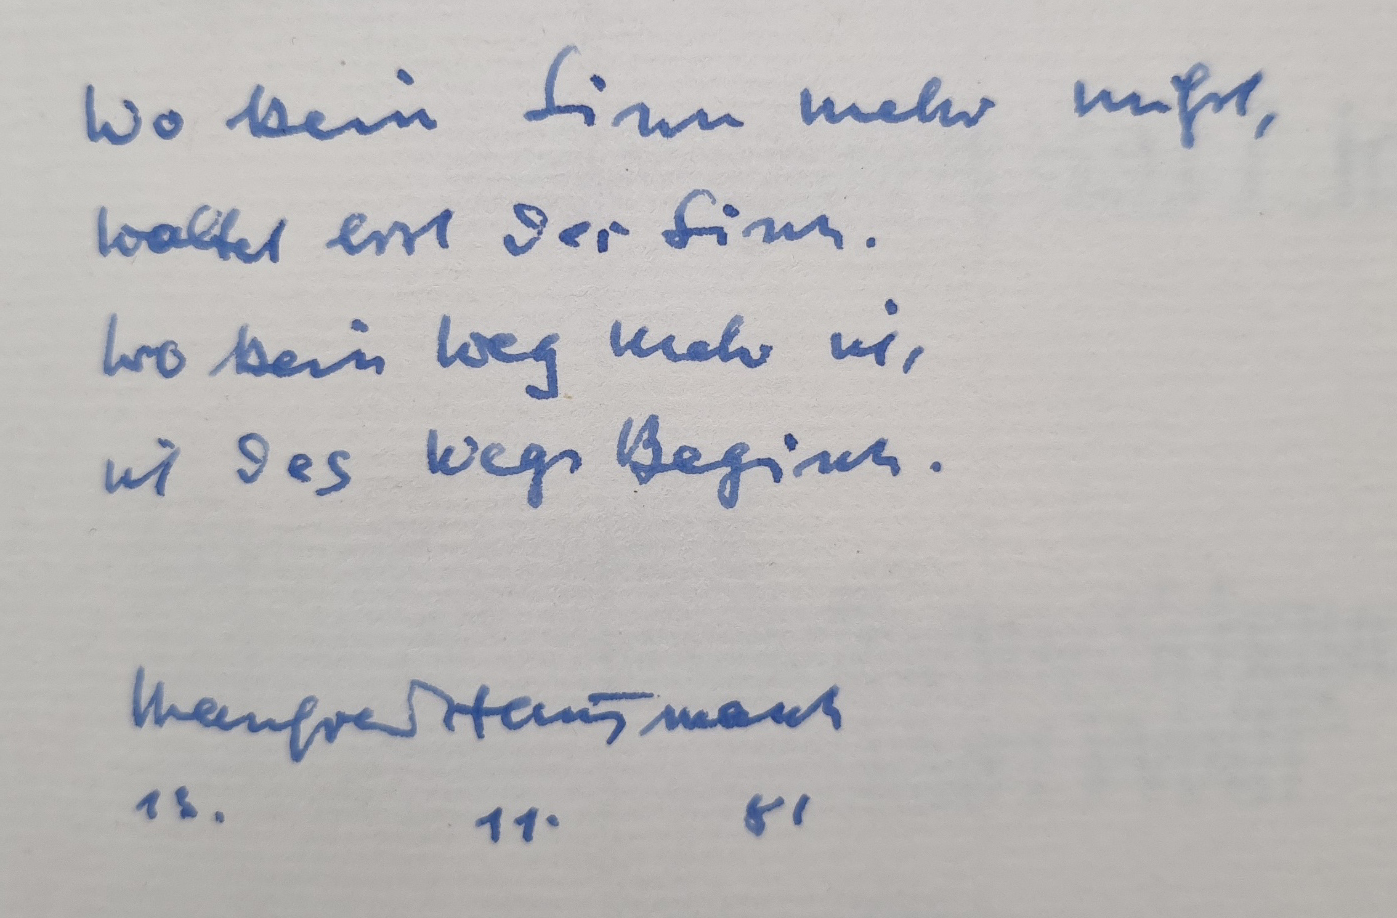 Wo kein Sinn mehr mißt,
waltet erst der Sinn.
Wo kein Weg mehr ist,
ist des Wegs Beginn.
Manfred Hausmann
11.